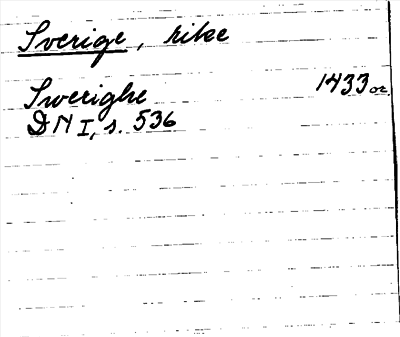 Sverige, rike
Swerighe 1433 or.
DN I, s. 536